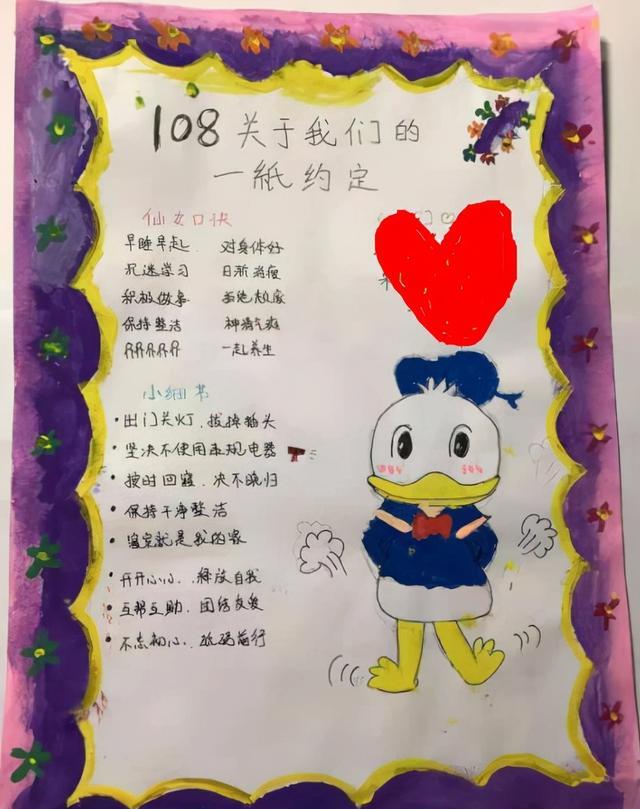 108 关于我们的
一紙约定
仙女口诀
早睡早起 对身体好
沉迷学习 日渐消瘦
积极做事
保持整洁 神清气爽
一起养生
小细节
·出门关灯、拔掉插头
·坚决不使用违规电器
·按时回寝、决不晚归
·保持干净整洁
·寝室就是我的家
·开开心心、释放自我
·互帮互助、团结友爱
·不忘初心、砥砺前行